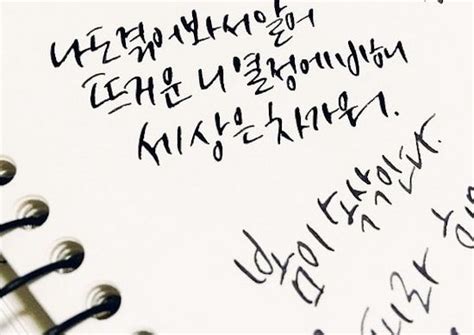 나도 겪어봐서 알어
뜨거운 니 열정에 비하니
세상은 차가워.
봄이 수작인다.